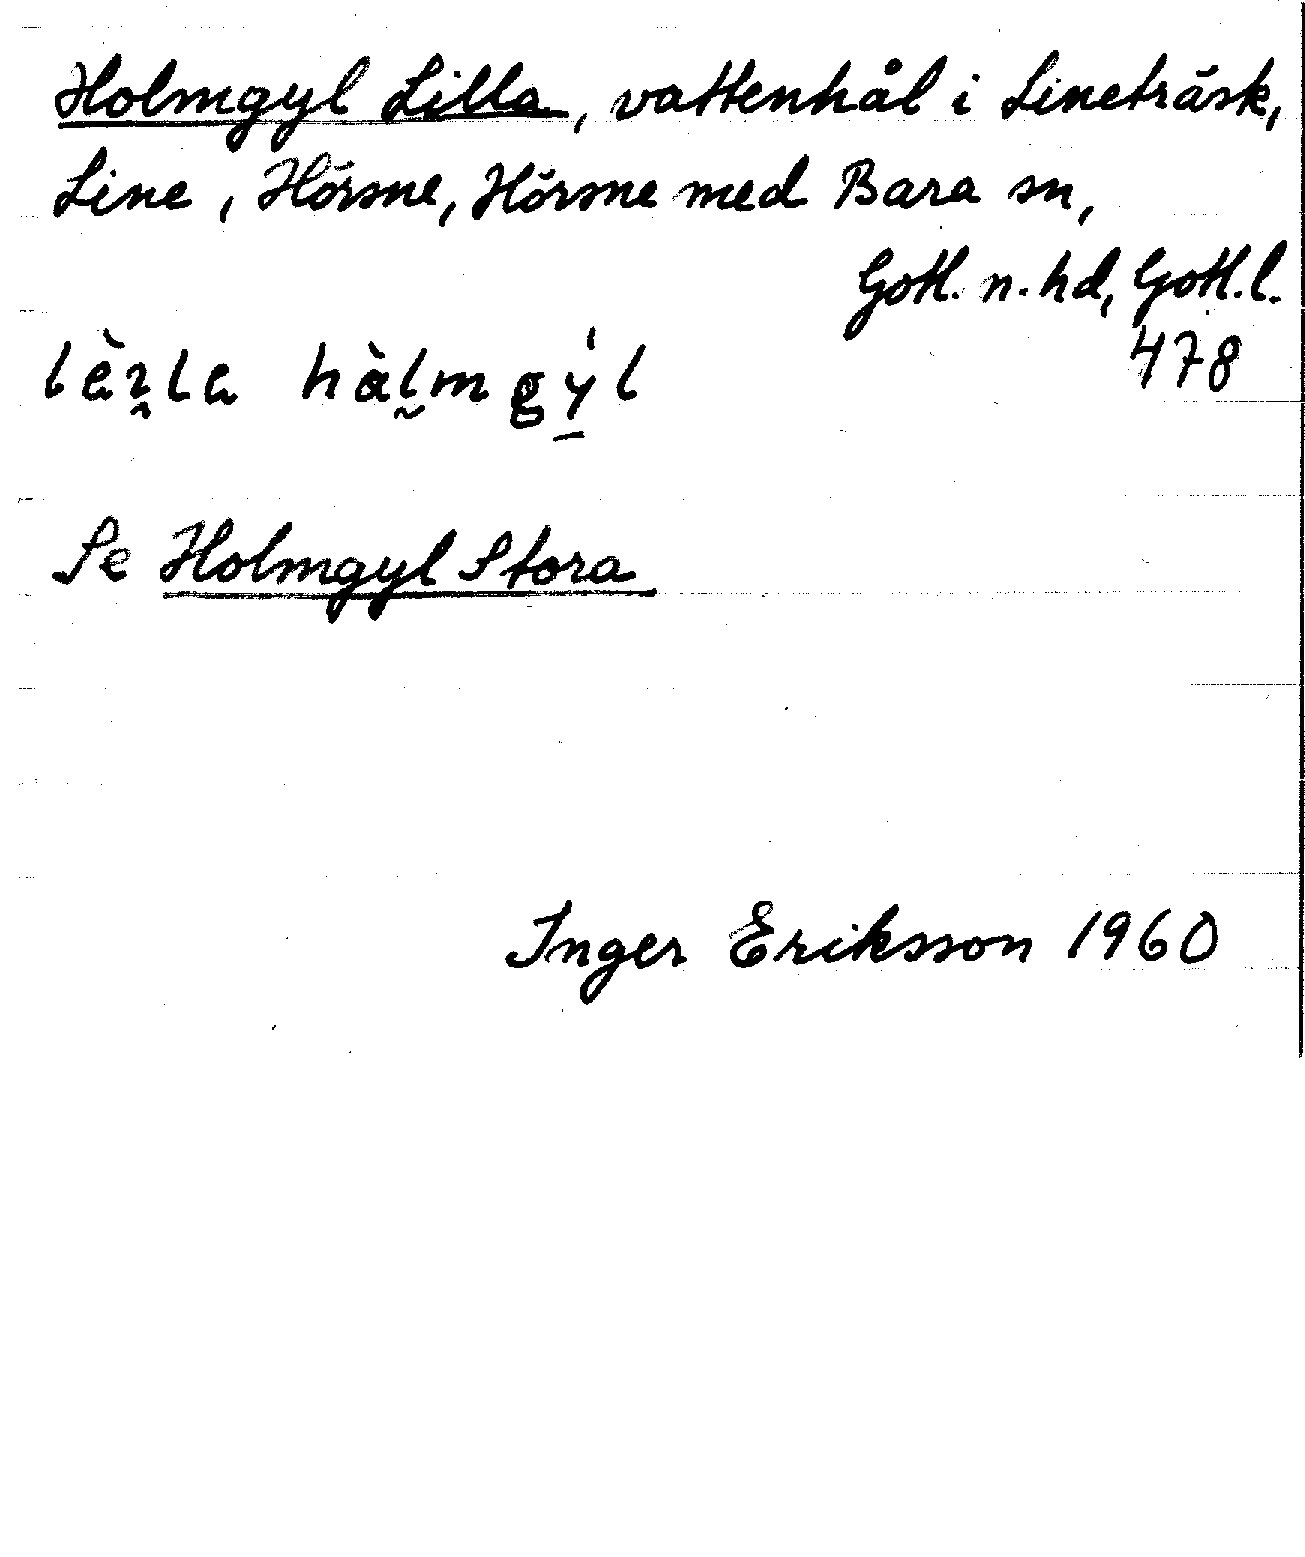 Holmgyl Lilla, vattenhål i Lineträsk,
Line, Hörsne, Hörsne med Bara sn,
Gotl. n. hd, Gotl. l.
478
hàlmgýl
Se Holmgyl Stora
Inger Eriksson 1960